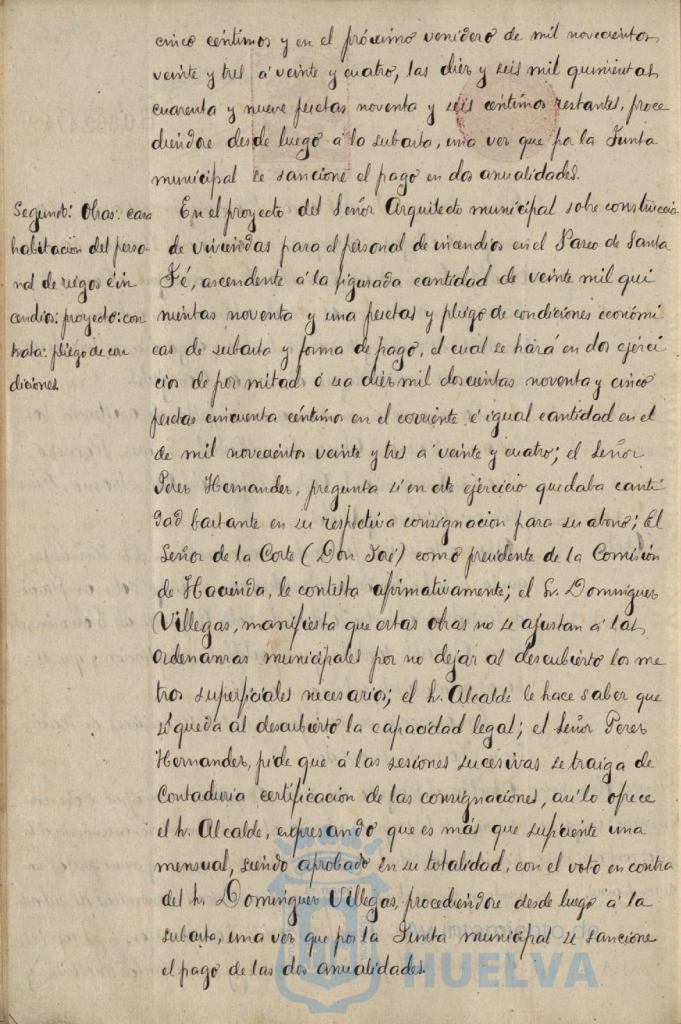 cinco céntimos y en el próximo venidero de mil novecientos
veinte y tres á veinte y cuatro, las diez y seis mil quinientas
cuarenta y nueve pesetas noventa y seis céntimos restantes, proce
diendose desde luego á la subasta, una vez que por la Junta
municipal se sancione el pago en dos anualidades.
Segundo: Obras: casa
habitación del perso-
nal de riegos é in
cendios: proyecto: con
trata: pliego de con
diciones.
En el proyecto del Señor Arquitecto municipal sobre construcción
de viviendas para el personal de incendios en el Paseo de Santa
Fé, ascendente á la figurada cantidad de veinte mil qui
nientas noventa y una pesetas y pliego de condiciones económi
cas de subasta y forma de pago, el cual se hará en dos ejerci
cios de por mitad ó sea diez mil doscientas noventa y cinco
pesetas cincuenta céntimos en el corriente é igual cantidad en el
de mil novecientos veinte y tres á veinte y cuatro; el Señor
Perez Hernandez, pregunta si en este ejercicio quedaba canti
dad bastante en su respectiva consignacion para su abono; El
Señor de la Corte (Don José) como presidente de la Comisión
de Hacienda, le contesta afirmativamente; el Sr. Dominguez
Villegas, manifiesta que estas obras no se ajustan á las
ordenanzas municipales por no dejar al descubierto los me
tros superficiales necesarios; el Sr. Alcalde le hace saber que
sí queda al descubierto la capacidad legal; el Señor Perez
Hernandez, pide que á las sesiones sucesivas se traiga de
Contaduria certificación de las consignaciones, así lo ofrece
el Sr. Alcalde, expresando que es más que suficiente una
mensual, siendo aprobado en su totalidad, con el voto en contra
del Sr. Dominguez Villegas, procediendose desde luego á la
subasta, una vez que por la Junta municipal se sancione
el pago de las dos anualidades.
Ayuntamiento de
HUELVA